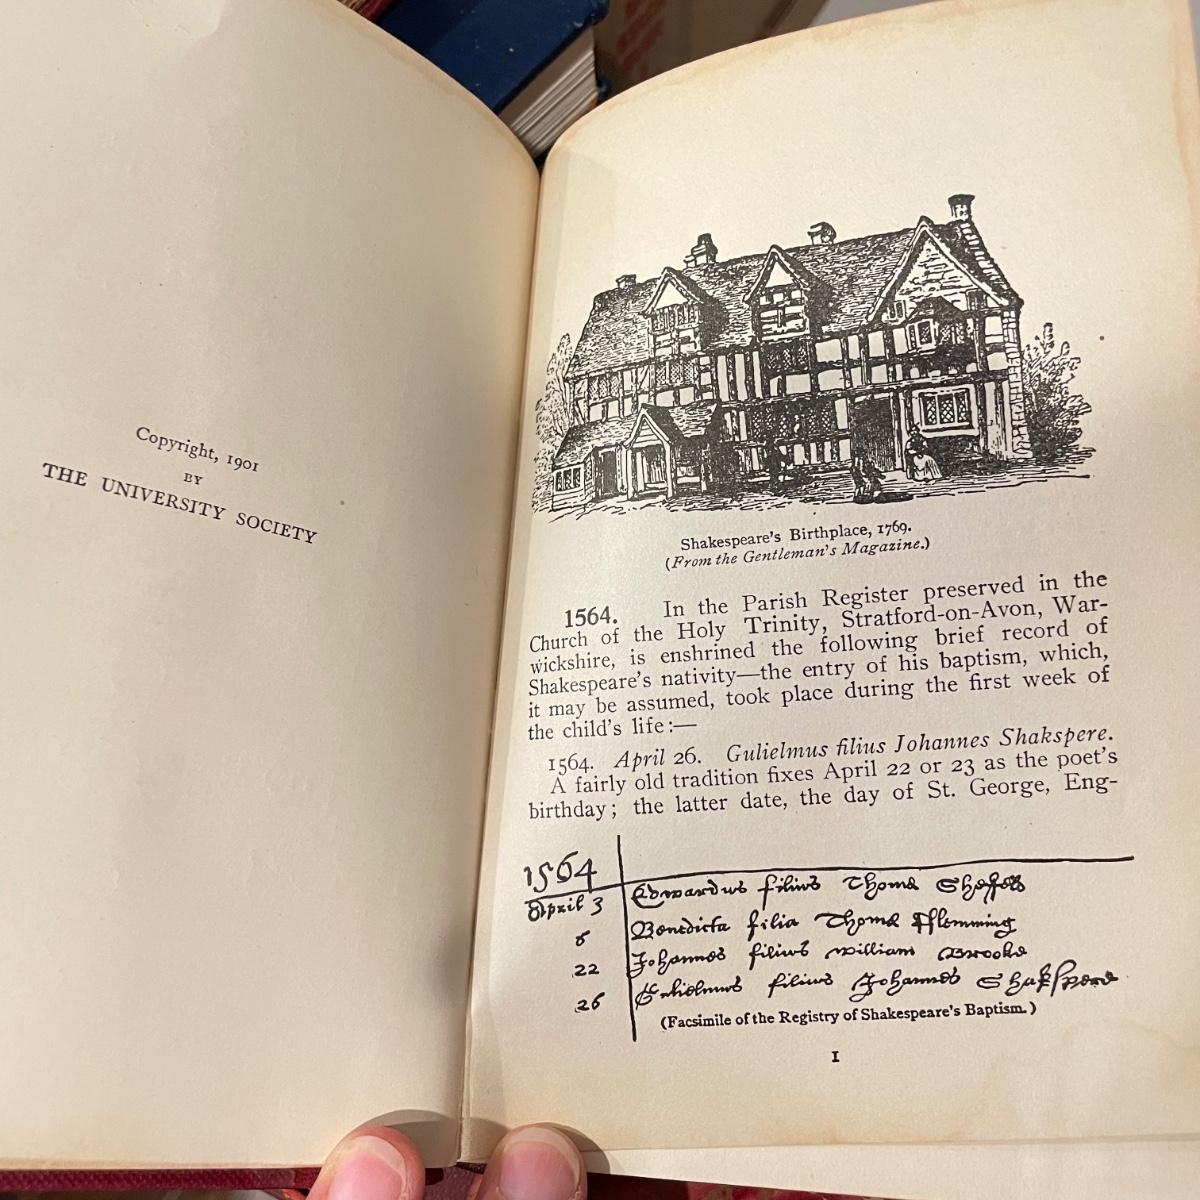 Copyright, 1901
BY
THE UNIVERSITY SOCIETY
Shakespeare's Birthplace, 1769.
(From the Gentleman's Magazine.)
1564. In the Parish Register preserved in the
Church of the Holy Trinity, Stratford-on-Avon, War-
wickshire, is enshrined the following brief record of
Shakespeare's nativity—the entry of his baptism, which,
it may be assumed, took place during the first week of
the child's life:—
1564. April 26. Gulielmus filius Johannes Shakspere.
A fairly old tradition fixes April 22 or 23 as the poet's
birthday; the latter date, the day of St. George, Eng-
1564
April 3 Edwardus filius Thome
Benedicta filia Thome Fflemming
22 Johannes filius William Brooke
26 Gulielmus filius Johannes Shakspere
(Facsimile of the Registry of Shakespeare's Baptism.)
1